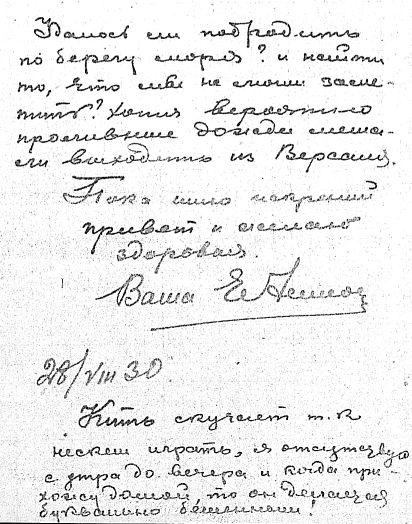 Удалось ли побродить
по берегу моря? и найти
то, что мы не смогли заме-
тить? Хотя вероятно
проливные дожди меша-
ли выходить из Версаля.
Пока шлю искренний
привет и желаю
здоровья.
Ваша Е.
28/VIII 30
Кить скучает т.к
не с кем играть, я отсутствую
с утра до вечера и когда при-
хожу домой, то он делается
буквально бешенным.